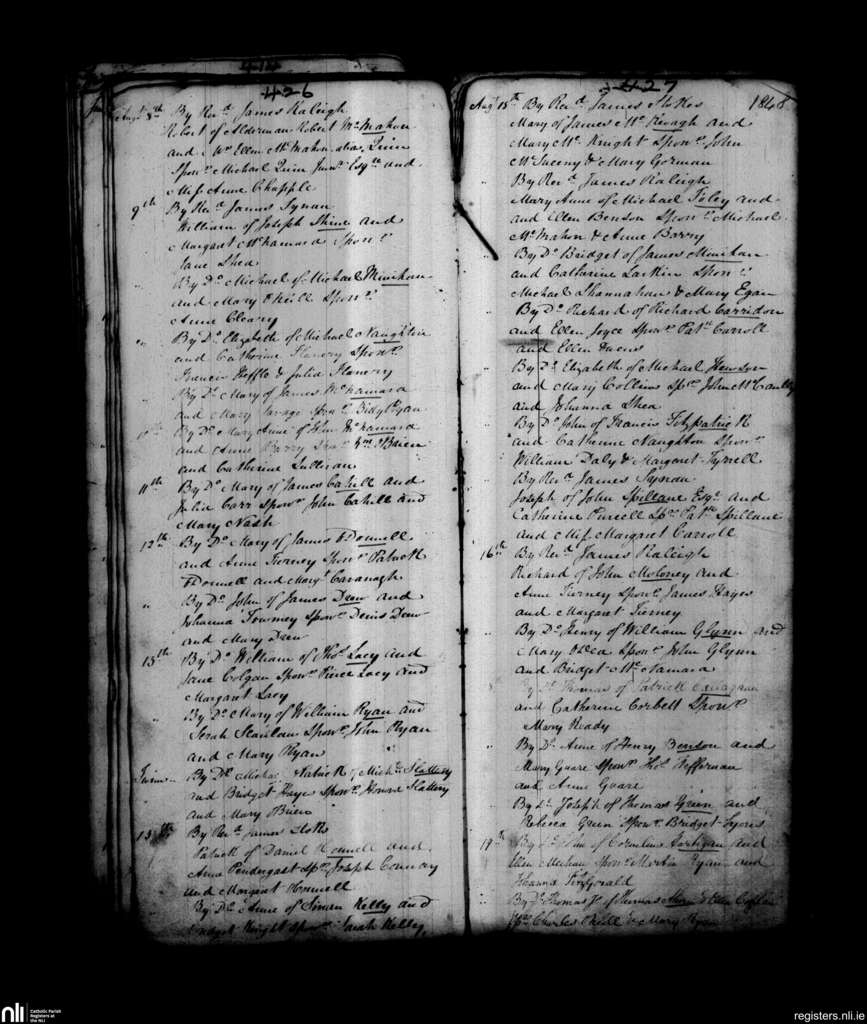 414
426
Augt 8th By Revd James Raleigh
Robert of Alderman Robert McMahon
and Mrs Ellen McMahon alias Quin
Sponrs Michael Quin Junr Esqre and
Miss Anne Chapple
9th By Revd James Synan
William of Joseph Shine and
Margaret McNamara Sponr
Jane Shea
By Do Michael of Michael Minihan
and Mary ONeill Sponr
Anne Cleary
By Do Elizabeth of Michael Naughtin
and Catherine Flanery Sponrs
Francis and Julia Flanery
By Do Mary of James McNamara
and Mary Sponr Bidy Ryan
By Do Mary Anne of John McNamara
and Anne Barry Wm OBrien
and Catherine Sullivan
11th By Do Mary of James Cahill and
Julia Carr Sponrs John Cahill and
Mary Nash
12th By Do Mary of James ODonnell
and Anne Tierney Sponrs Patrick
ODonnell and Mary Cavanagh
" By Do John of James Drew and
Johanna Twomey Sponrs Denis Drew
and Mary Drew
13th By Do William of Thos Lacy and
Jane Colgan Sponrs Pierce Lacy and
Margaret Lacy
By Do Mary of William Ryan and
Sarah Scanlan Sponrs John Ryan
and Mary Ryan
Twins By Do Michael Patrick of Michl Slattery
and Bridget Hayes Sponrs Honora Slattery
and Mary Brien
15th By Revd James
Patrick of Daniel Honnell and
Anne Pendergast Sprs Joseph Conway
and Margaret Honnell
By Do Anne of Simon Kelly and
Bridget Knight Sponrs Sarah Kelly
427
Augt 15th By Revd James Stokes 1848
Mary of James McKeogh and
Mary McKnight Sponrs John
McSweeny & Mary Gorman
" By Revd James Raleigh
Mary Anne of Michael Foley and
and Ellen Benson Sponrs Michael
McMahon & Anne Barry
" By Do Bridget of James Minihan
and Catherine Larkin Sponrs
Michael Shannahan & Mary Egan
" By Do Richard of Richard Carridon
and Ellen Joyce Sponrs Patt Carroll
and Ellen Owens
" By Do Elizabeth of Michael Hewson
and Mary Collins Sprs John McCaulty
and Johanna Shea
" By Do John of Francis Fitzpatrick
and Catherine Naughton Sponrs
William Daly & Margaret Tyrrell
" By Revd James Synan
Joseph of John Spillane Esqr and
Catherine Purcell Sprs Patk Spillane
and Miss Margaret Carroll
16th By Revd James Raleigh
Richard of John Moloney and
Anne Tierney Sponrs James Hayes
and Margaret Tierney
" By Do Henry of William Glynn and
Mary ODea Sponrs John Glynn
and Bridget McNamara
By Do Thomas of Patrick
and Catherine Corbett Sponr
Mary Ready
" By Do Anne of Henry Benson and
Mary Guare Sponrs Thos Heffernan
and Anne Guare
" By Do Joseph of Thomas Green and
Rebecca Green Sponr Bridget Lyons
17th By Do of Cornelius Hartigan and
Ellen Meehan Sponrs Martin Ryan and
Johanna Fitzgerald
" By Do Thomas Js of Thomas and Ellen
Sprs Charles ONeill & Mary Ryan
nli
Catholic Parish
Registers at
the NLI
registers.nli.ie